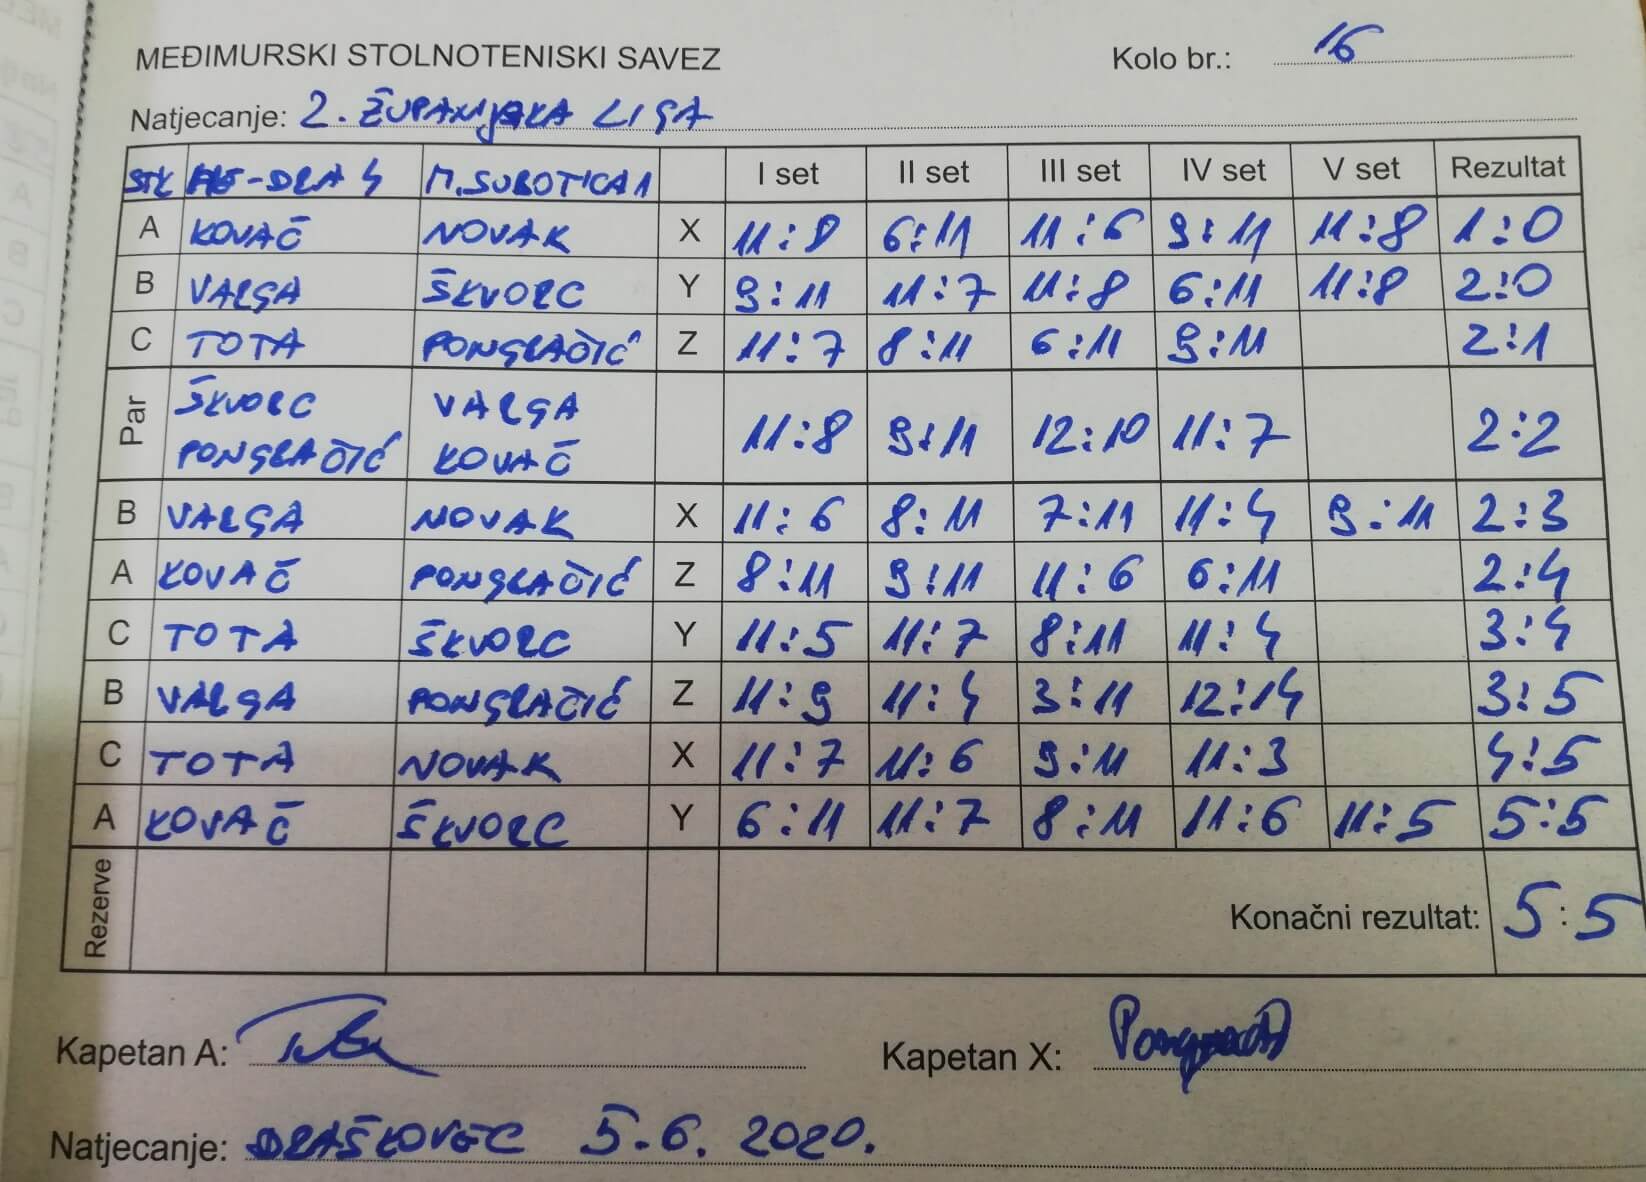 MEĐIMURSKI STOLNOTENISKI SAVEZ Kolo br.: 16
Natjecanje: 2. ŽUPANIJSKA LIGA
STK -DRA 4 M.SUBOTICA 1 I set II set III set IV set V set Rezultat
A KOVAČ NOVAK X 11:8 6:11 11:6 9:11 11:8 1:0
B VARGA ŠKVORC Y 9:11 11:7 11:8 6:11 11:8 2:0
C TOTA PONGRAČIĆ Z 11:7 8:11 6:11 9:11 2:1
Par ŠKVORC PONGRAČIĆ VARGA KOVAČ 11:8 9:11 12:10 11:7 2:2
B VARGA NOVAK X 11:6 8:11 7:11 11:4 9:11 2:3
A KOVAČ PONGRAČIĆ Z 8:11 9:11 11:6 6:11 2:4
C TOTA ŠKVORC Y 11:5 11:7 8:11 11:4 3:4
B VARGA PONGRAČIĆ Z 11:9 11:4 3:11 12:14 3:5
C TOTA NOVAK X 11:7 11:6 9:11 11:3 4:5
A KOVAČ ŠKVORC Y 6:11 11:7 8:11 11:6 11:5 5:5
Rezerve Konačni rezultat: 5:5
Kapetan A: Kapetan X:
Natjecanje: DRAŠKOVEC 5.6. 2020.